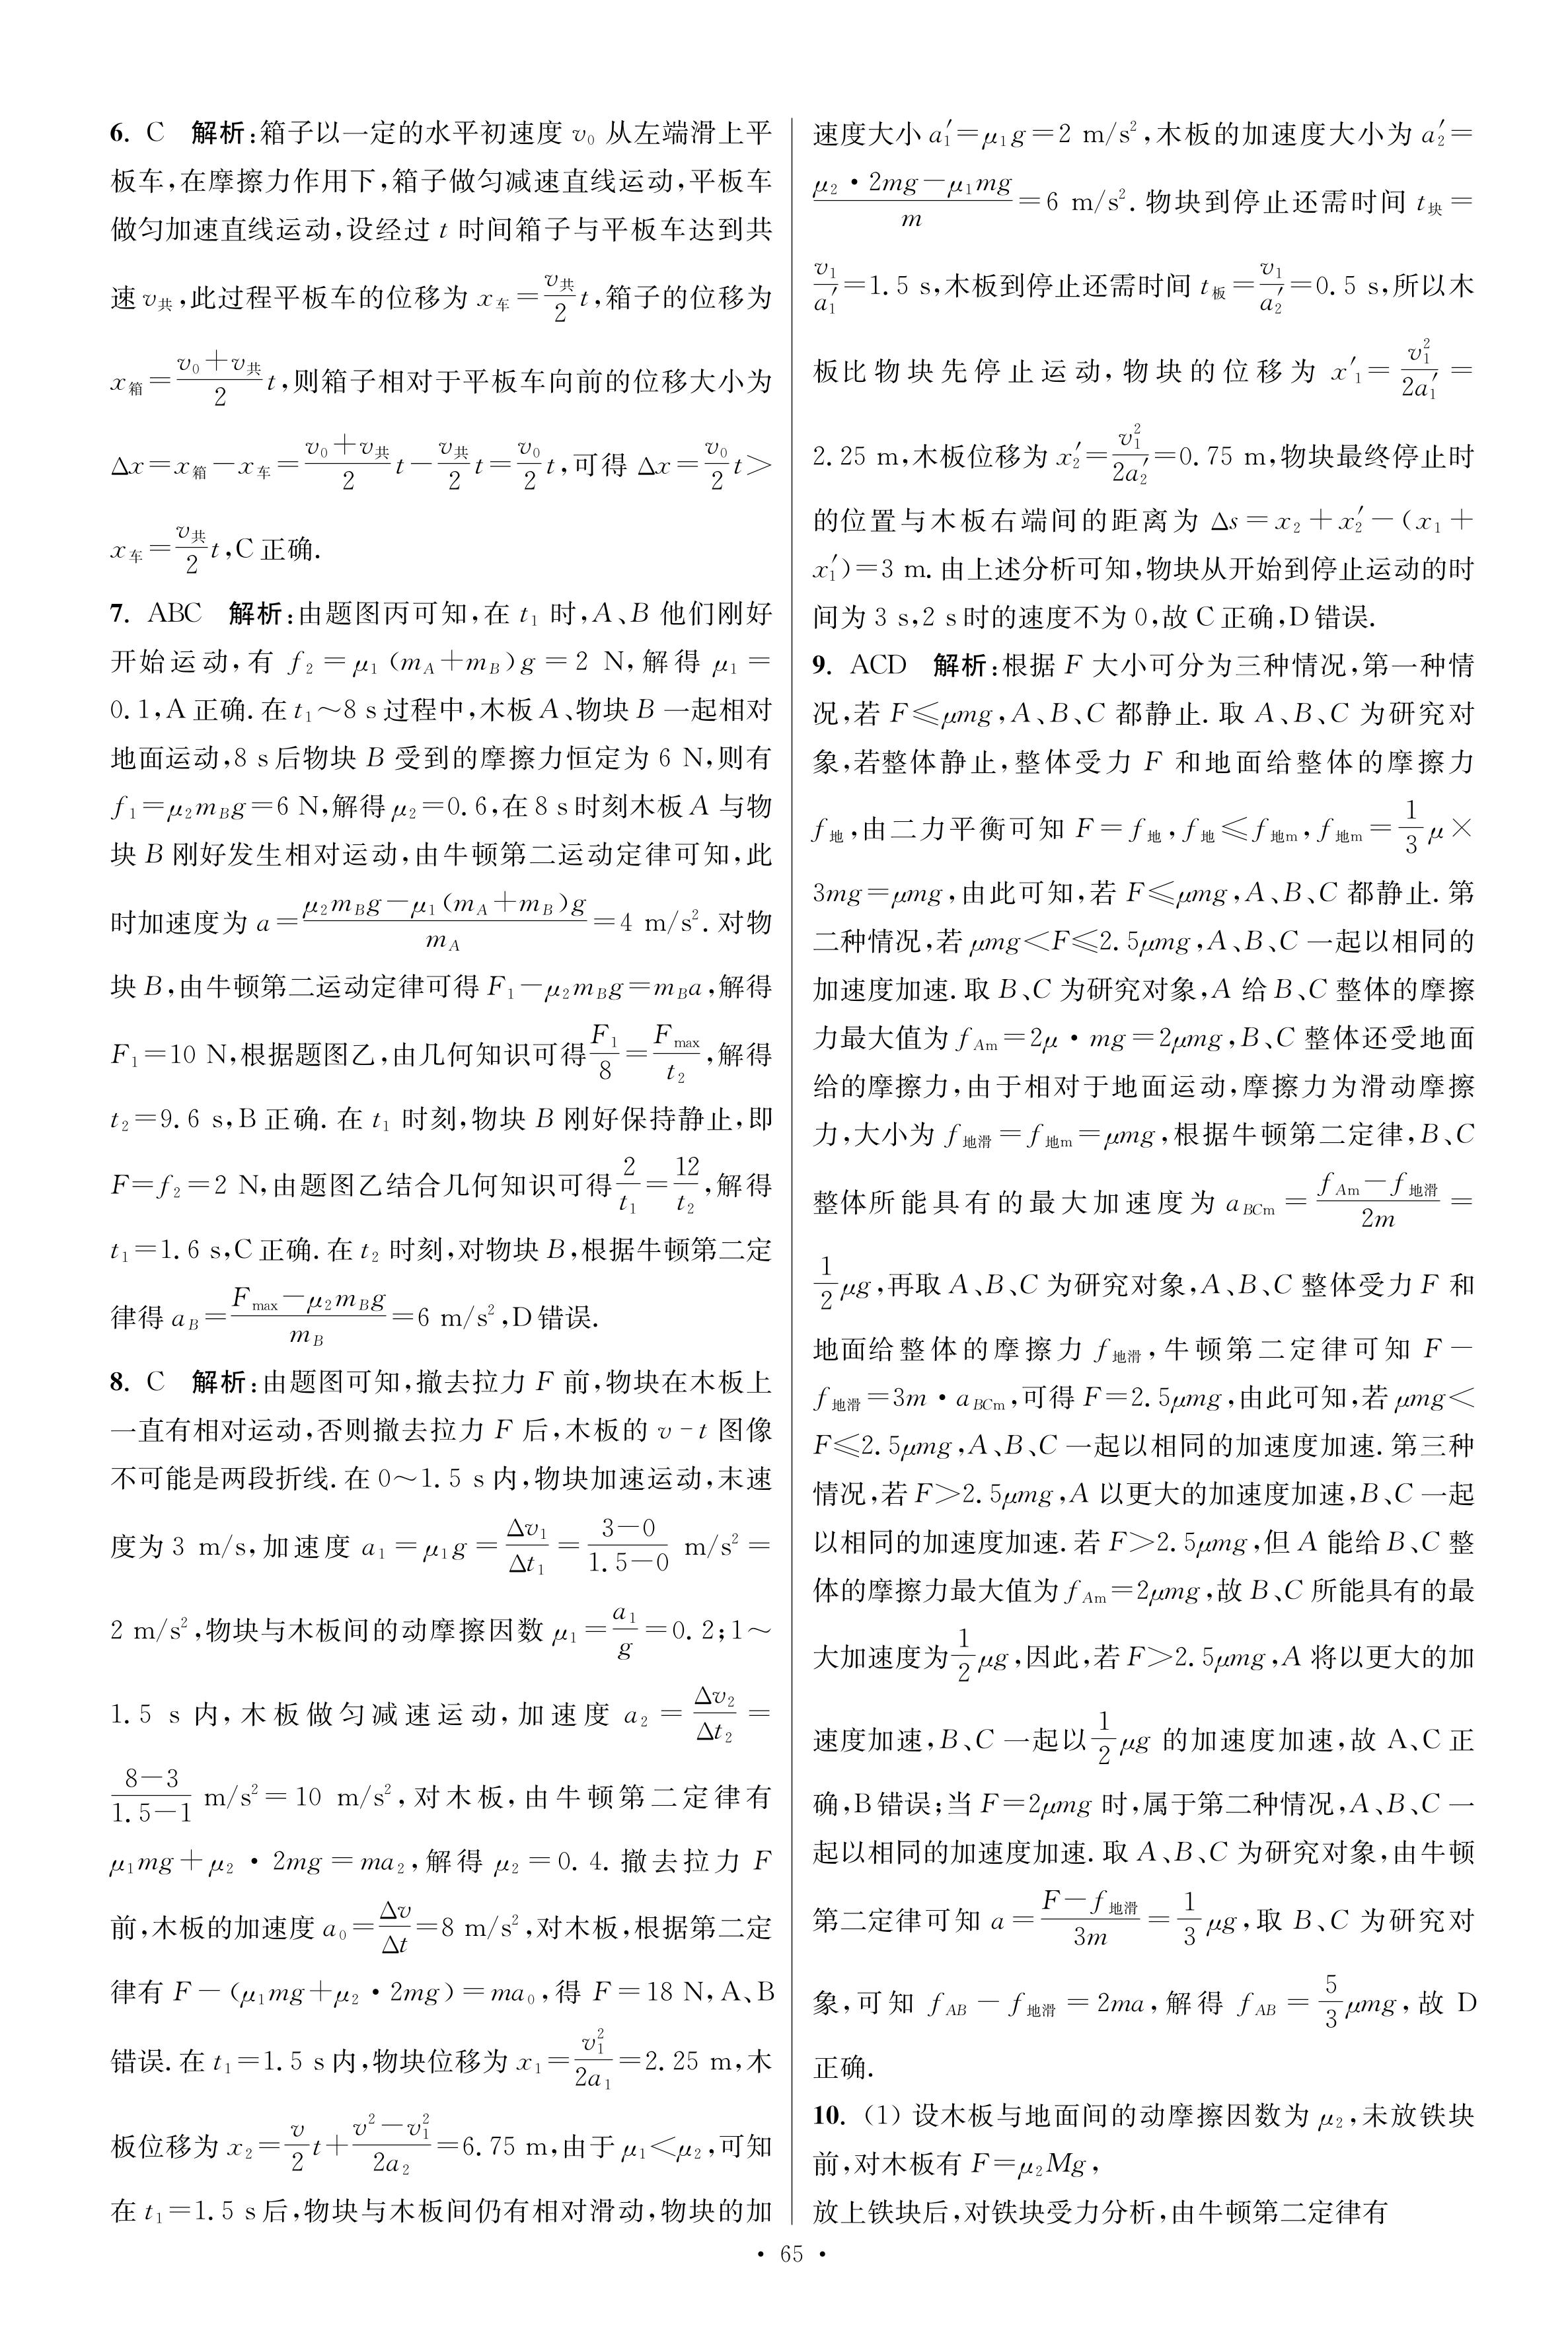 6. C　解析:箱子以一定的水平初速度 v₀ 从左端滑上平
板车,在摩擦力作用下,箱子做匀减速直线运动,平板车
做匀加速直线运动,设经过 t 时间箱子与平板车达到共
速 v共,此过程平板车的位移为 x车=\frac{v共}{2}t,箱子的位移为
x箱=\frac{v₀+v共}{2}t,则箱子相对于平板车向前的位移大小为
Δx=x箱-x车=\frac{v₀+v共}{2}t-\frac{v共}{2}t=\frac{v₀}{2}t,可得 Δx=\frac{v₀}{2}t>
x车=\frac{v共}{2}t,C 正确.
7. ABC　解析:由题图丙可知,在 t₁ 时,A、B 他们刚好
开始运动,有 f₂=μ₁(m_A+m_B)g=2 N,解得 μ₁=
0.1,A 正确.在 t₁~8 s 过程中,木板 A、物块 B 一起相对
地面运动,8 s 后物块 B 受到的摩擦力恒定为 6 N,则有
f₁=μ₂m_Bg=6 N,解得 μ₂=0.6,在 8 s 时刻木板 A 与物
块 B 刚好发生相对运动,由牛顿第二运动定律可知,此
时加速度为 a=\frac{μ₂m_Bg-μ₁(m_A+m_B)g}{m_A}=4 m/s².对物
块 B,由牛顿第二运动定律可得 F₁-μ₂m_Bg=m_Ba,解得
F₁=10 N,根据题图乙,由几何知识可得\frac{F₁}{8}=\frac{F_max}{t₂},解得
t₂=9.6 s,B 正确.在 t₁ 时刻,物块 B 刚好保持静止,即
F=f₂=2 N,由题图乙结合几何知识可得\frac{2}{t₁}=\frac{12}{t₂},解得
t₁=1.6 s,C 正确.在 t₂ 时刻,对物块 B,根据牛顿第二定
律得 a_B=\frac{F_max-μ₂m_Bg}{m_B}=6 m/s²,D 错误.
8. C　解析:由题图可知,撤去拉力 F 前,物块在木板上
一直有相对运动,否则撤去拉力 F 后,木板的 v-t 图像
不可能是两段折线.在 0~1.5 s 内,物块加速运动,末速
度为 3 m/s,加速度 a₁=μ₁g=\frac{Δv₁}{Δt₁}=\frac{3-0}{1.5-0} m/s²=
2 m/s²,物块与木板间的动摩擦因数 μ₁=\frac{a₁}{g}=0.2;1~
1.5 s 内,木板做匀减速运动,加速度 a₂=\frac{Δv₂}{Δt₂}=
\frac{8-3}{1.5-1} m/s²=10 m/s²,对木板,由牛顿第二定律有
μ₁mg+μ₂·2mg=ma₂,解得 μ₂=0.4.撤去拉力 F
前,木板的加速度 a₀=\frac{Δv}{Δt}=8 m/s²,对木板,根据第二定
律有 F-(μ₁mg+μ₂·2mg)=ma₀,得 F=18 N,A、B
错误.在 t₁=1.5 s 内,物块位移为 x₁=\frac{v₁²}{2a₁}=2.25 m,木
板位移为 x₂=\frac{v}{2}t+\frac{v²-v₁²}{2a₂}=6.75 m,由于 μ₁<μ₂,可知
在 t₁=1.5 s 后,物块与木板间仍有相对滑动,物块的加
速度大小 a₁′=μ₁g=2 m/s²,木板的加速度大小为 a₂′=
\frac{μ₂·2mg-μ₁mg}{m}=6 m/s².物块到停止还需时间 t块=
\frac{v₁}{a₁′}=1.5 s,木板到停止还需时间 t板=\frac{v₁}{a₂′}=0.5 s,所以木
板比物块先停止运动,物块的位移为 x′₁=\frac{v₁²}{2a₁′}=
2.25 m,木板位移为 x₂′=\frac{v₁²}{2a₂′}=0.75 m,物块最终停止时
的位置与木板右端间的距离为 Δs=x₂+x₂′-(x₁+
x₁′)=3 m.由上述分析可知,物块从开始到停止运动的时
间为 3 s,2 s 时的速度不为 0,故 C 正确,D 错误.
9. ACD　解析:根据 F 大小可分为三种情况,第一种情
况,若 F≤μmg,A、B、C 都静止.取 A、B、C 为研究对
象,若整体静止,整体受力 F 和地面给整体的摩擦力
f地,由二力平衡可知 F=f地,f地≤f地m,f地m=\frac{1}{3}μ×
3mg=μmg,由此可知,若 F≤μmg,A、B、C 都静止.第
二种情况,若 μmg<F≤2.5μmg,A、B、C 一起以相同的
加速度加速.取 B、C 为研究对象,A 给 B、C 整体的摩擦
力最大值为 f_Am=2μ·mg=2μmg,B、C 整体还受地面
给的摩擦力,由于相对于地面运动,摩擦力为滑动摩擦
力,大小为 f地滑=f地m=μmg,根据牛顿第二定律,B、C
整体所能具有的最大加速度为 a_BCm=\frac{f_Am-f地滑}{2m}=
\frac{1}{2}μg,再取 A、B、C 为研究对象,A、B、C 整体受力 F 和
地面给整体的摩擦力 f地滑,牛顿第二定律可知 F-
f地滑=3m·a_BCm,可得 F=2.5μmg,由此可知,若 μmg<
F≤2.5μmg,A、B、C 一起以相同的加速度加速.第三种
情况,若 F>2.5μmg,A 以更大的加速度加速,B、C 一起
以相同的加速度加速.若 F>2.5μmg,但 A 能给 B、C 整
体的摩擦力最大值为 f_Am=2μmg,故 B、C 所能具有的最
大加速度为\frac{1}{2}μg,因此,若 F>2.5μmg,A 将以更大的加
速度加速,B、C 一起以\frac{1}{2}μg 的加速度加速,故 A、C 正
确,B 错误;当 F=2μmg 时,属于第二种情况,A、B、C 一
起以相同的加速度加速.取 A、B、C 为研究对象,由牛顿
第二定律可知 a=\frac{F-f地滑}{3m}=\frac{1}{3}μg,取 B、C 为研究对
象,可知 f_AB-f地滑=2ma,解得 f_AB=\frac{5}{3}μmg,故 D
正确.
10. (1) 设木板与地面间的动摩擦因数为 μ₂,未放铁块
前,对木板有 F=μ₂Mg,
放上铁块后,对铁块受力分析,由牛顿第二定律有
· 65 ·